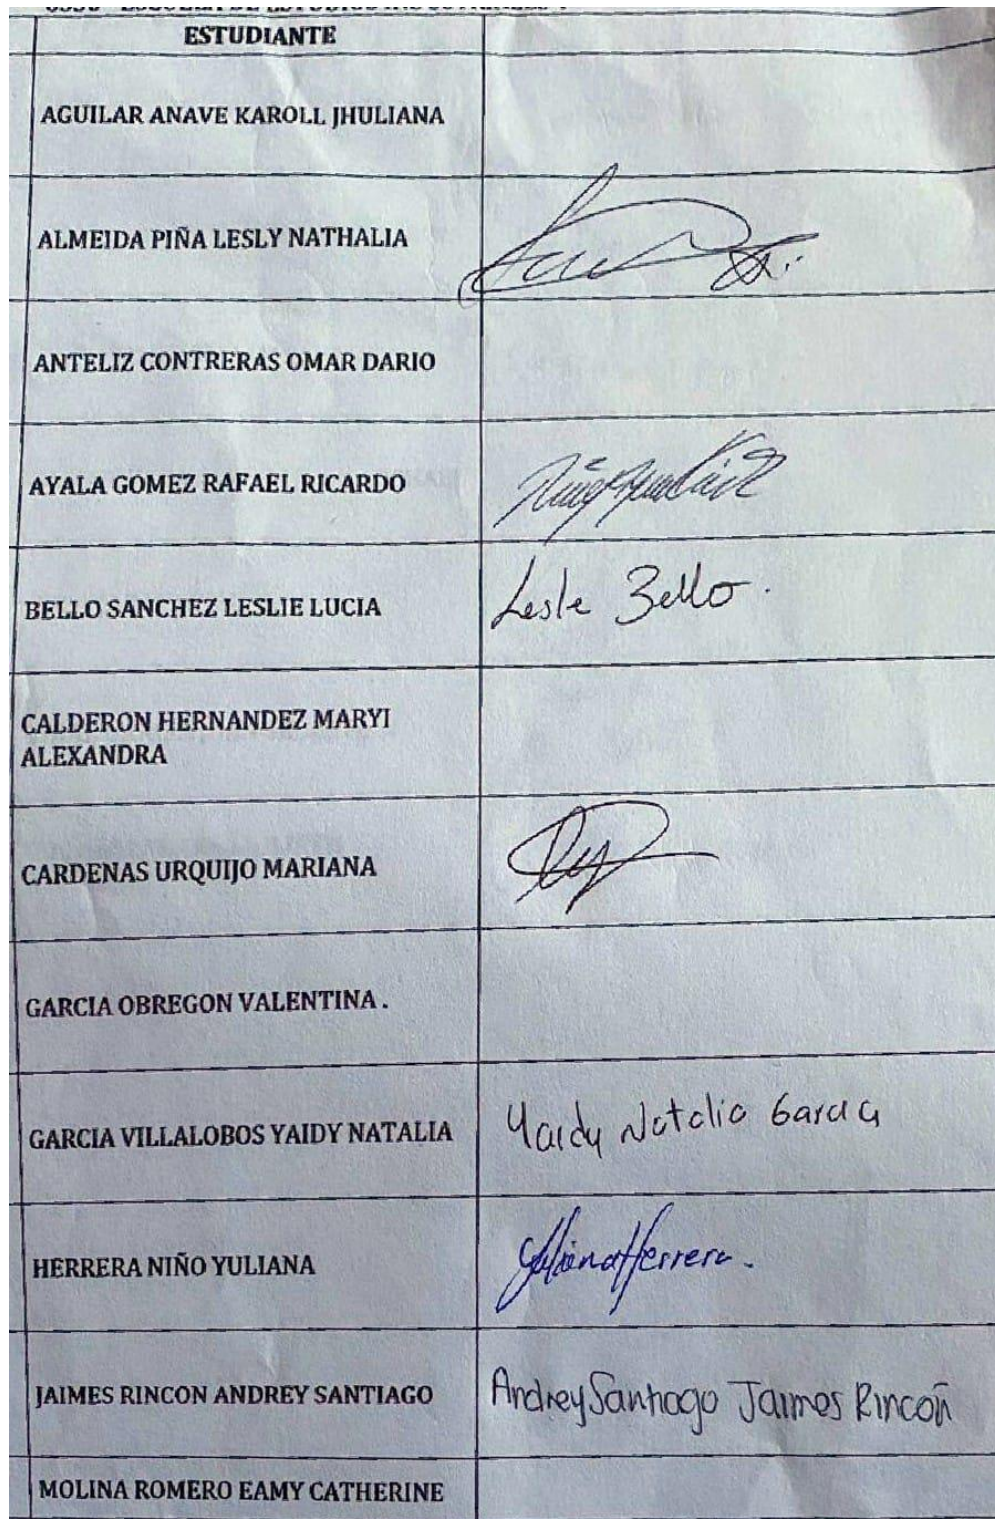 ESTUDIANTE
AGUILAR ANAVE KAROLL JHULIANA
ALMEIDA PIÑA LESLY NATHALIA
ANTELIZ CONTRERAS OMAR DARIO
AYALA GOMEZ RAFAEL RICARDO
BELLO SANCHEZ LESLIE LUCIA
Leslie Bello.
CALDERON HERNANDEZ MARYI
ALEXANDRA
CARDENAS URQUIJO MARIANA
GARCIA OBREGON VALENTINA .
GARCIA VILLALOBOS YAIDY NATALIA
Yaidy Natalia Garcia
HERRERA NIÑO YULIANA
Yuliana Herrera.
JAIMES RINCON ANDREY SANTIAGO
Andrey Santiago Jaimes Rincon
MOLINA ROMERO EAMY CATHERINE